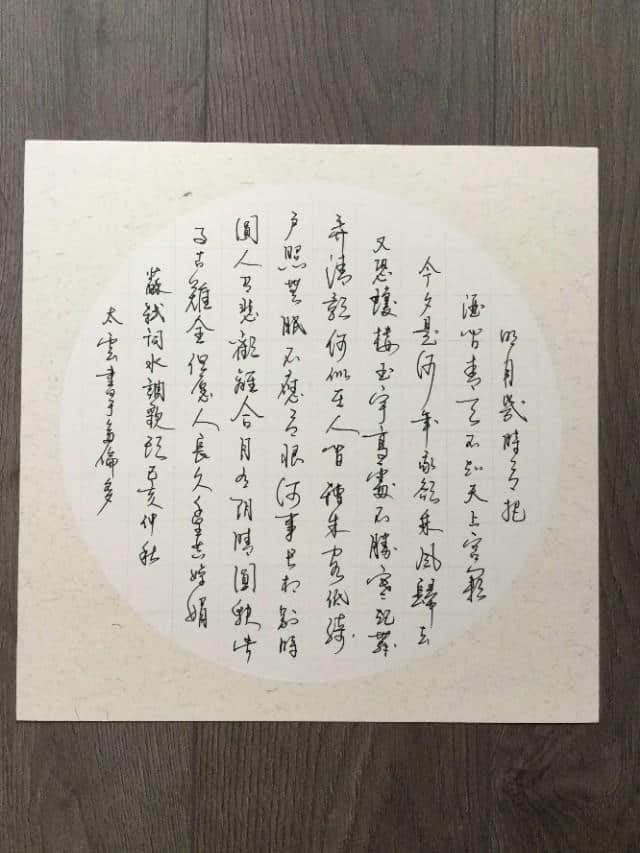 明月幾時有把
酒問青天不知天上宮闕
今夕是何年我欲乘風歸去
又恐瓊樓玉宇高處不勝寒起舞
弄清影何似在人間轉朱閣低綺
戶照無眠不應有恨何事長向別時
圓人有悲歡離合月有阴晴圓缺此
事古難全但願人長久千里共嬋娟
蘇軾詞水調歌頭己亥仲秋
太雲書于多倫多